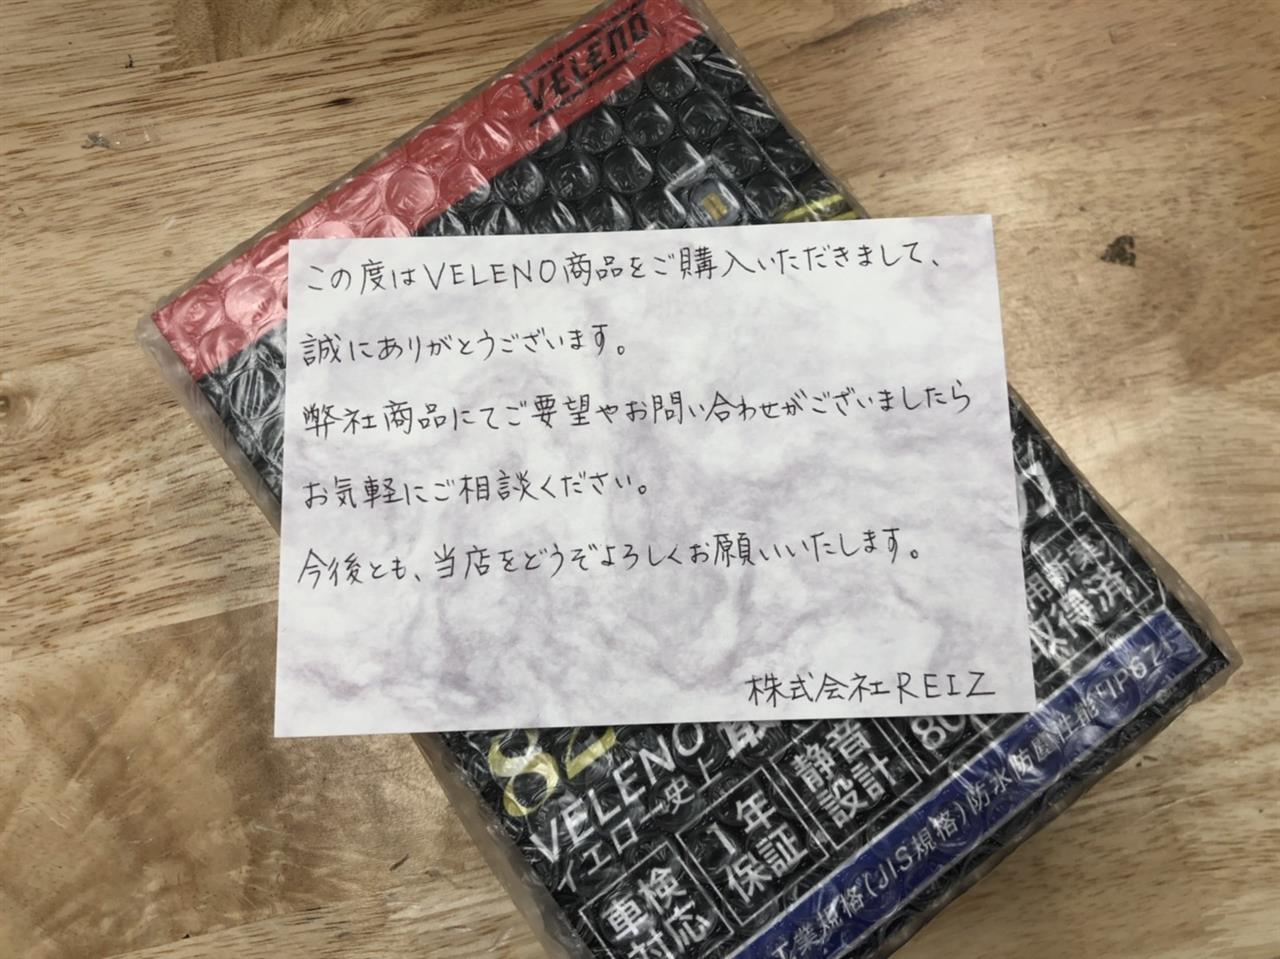 VELENO
この度はVELENO商品をご購入いただきまして、
誠にありがとうございます。
弊社商品にてご要望やお問い合わせがございましたら
お気軽にご相談ください。
今後とも、当店をどうぞよろしくお願いいたします。
株式会社REIZ
VELENO
イエロー史上
車検
対応
1年
保証
静音
設計
80
工業規格(JIS規格)防水防塵性能「IP67」